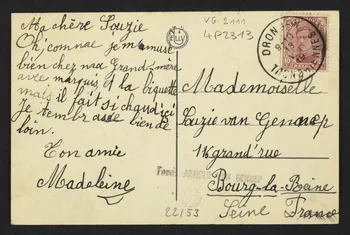 Ma chère Souzie
Oh, comme je m'amuse
bien chez ma Grand-mère
avec marquis et la biquette
mais il fait si chaud ici
Je t'embrasse bien de
loin.
Ton amie
Madeleine
VG 2111
4P2313
NELLY
Mademoiselle
Suzie van Gennep
14 grand'rue
Bourg-la-Reine
Seine France
22/53